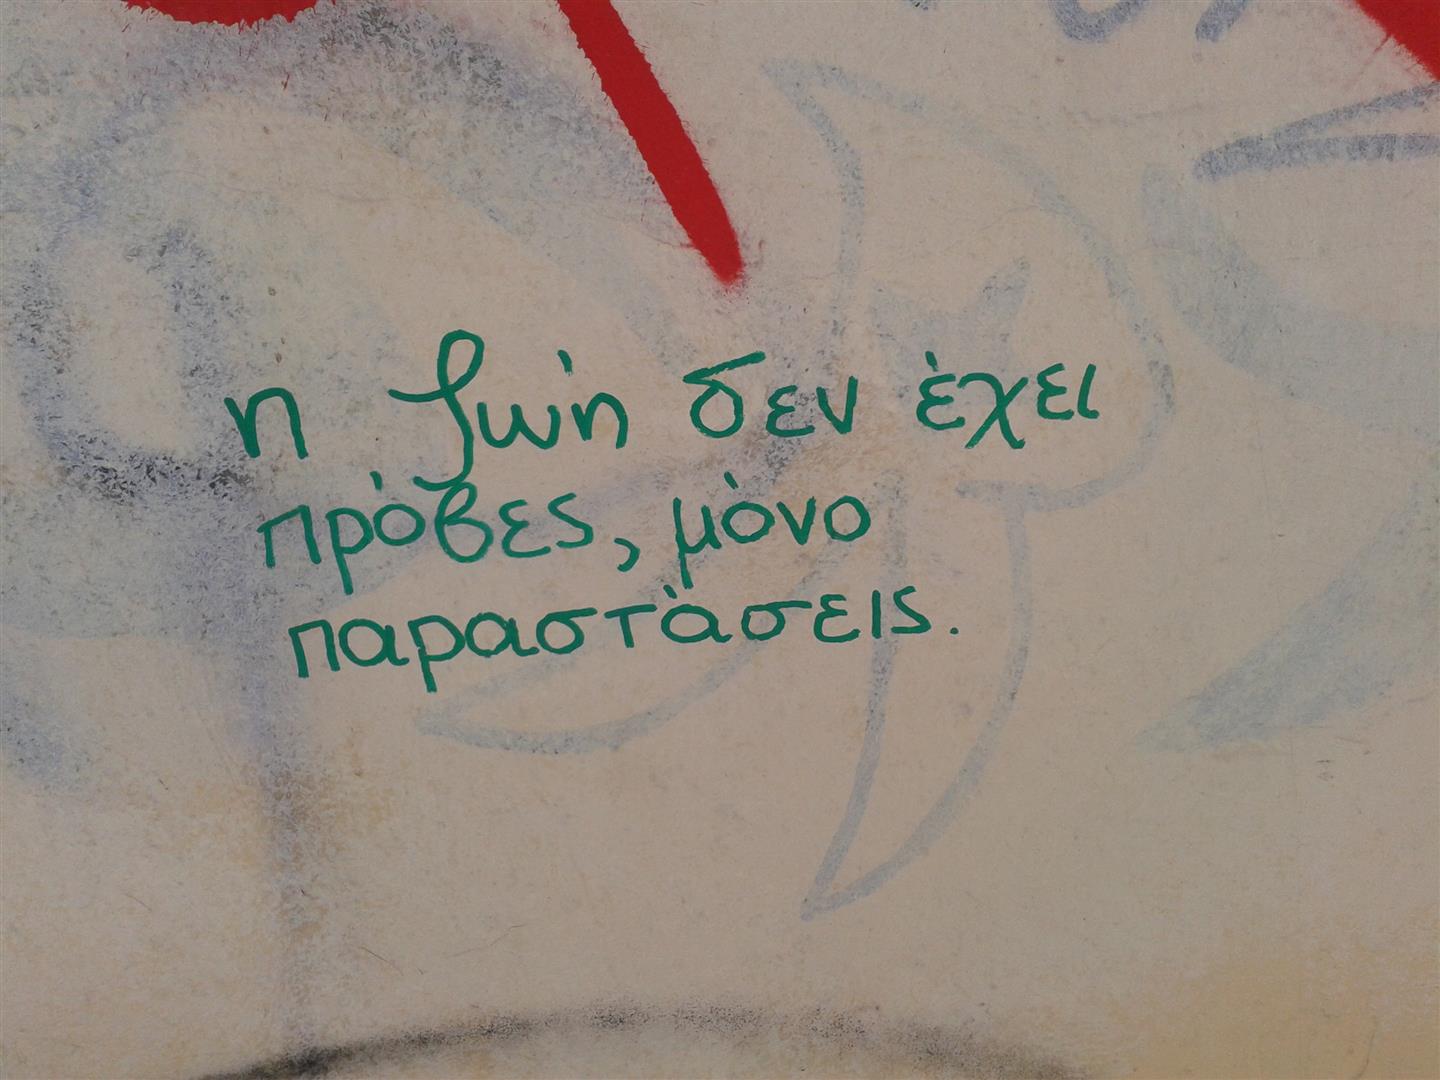 η ζωή δεν έχει
πρόβες, μόνο
παραστάσεις.